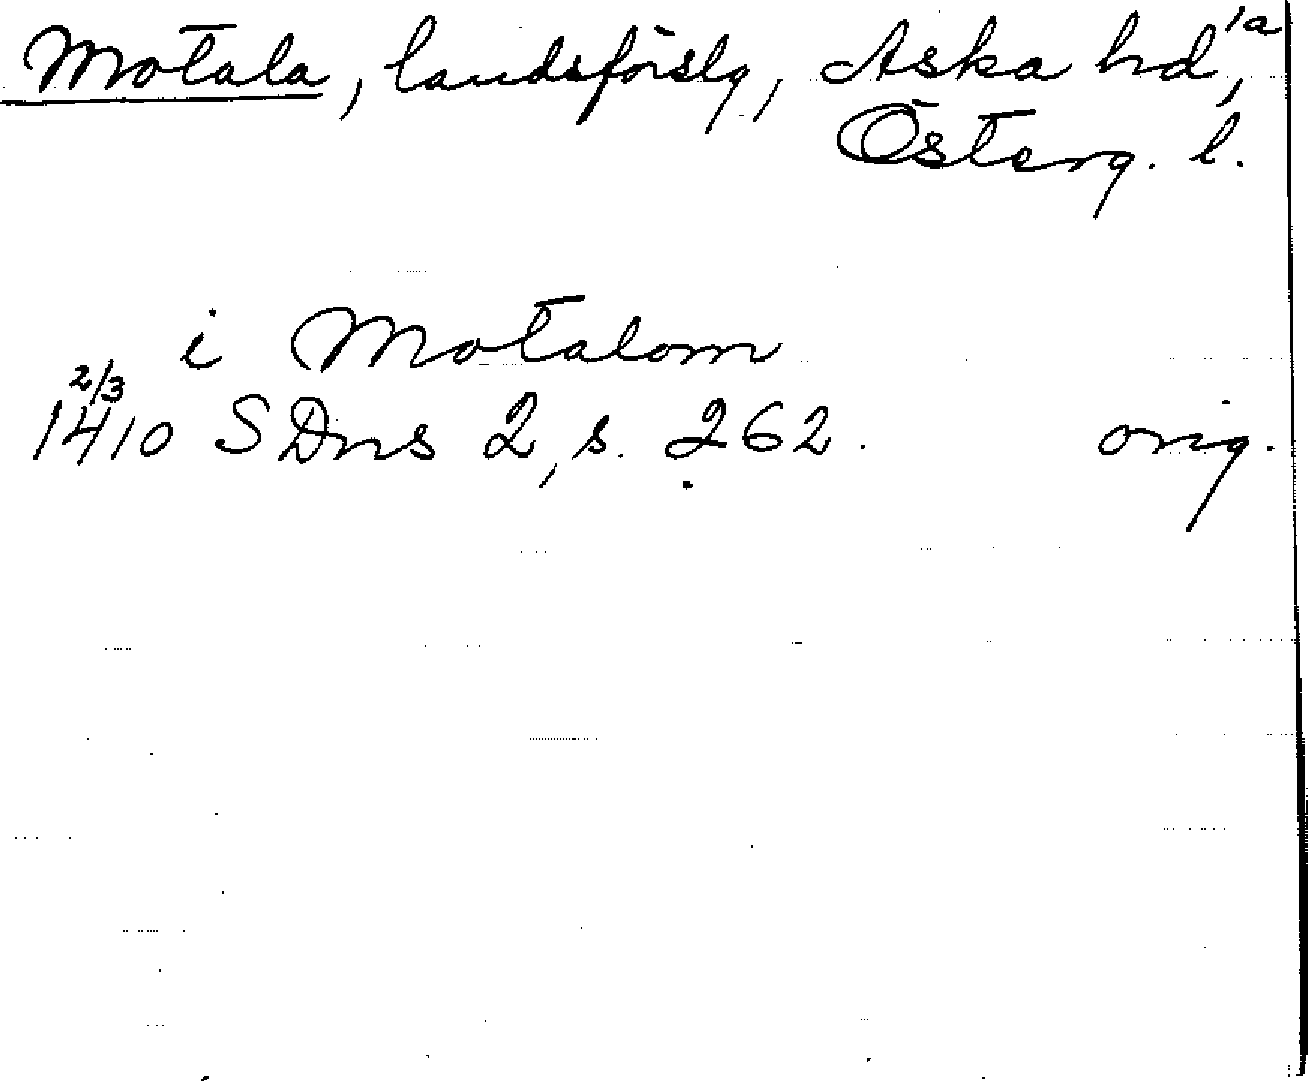 Motala, landsförslg, Aska hd, 1a
Österg. l.
i Motalom
2/3
1410 SDns 2, s. 262. orig.